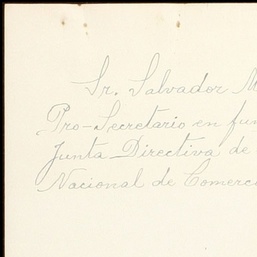 Sr. Salvador M
Pro-Secretario en fun
Junta Directiva de
Nacional de Comerc